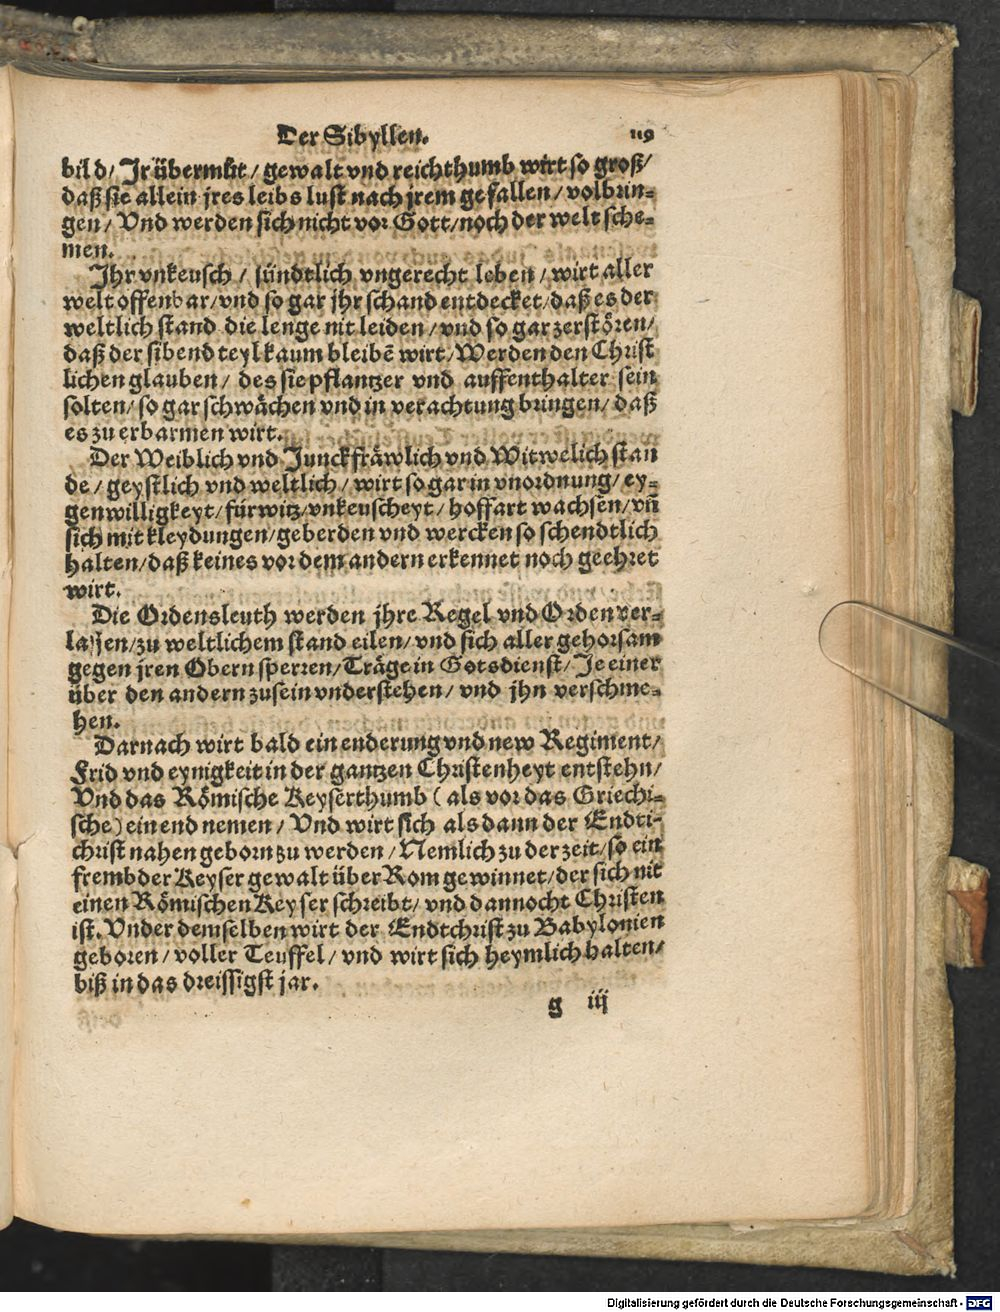 Der Sibyllen. 119
bild/ Jr übermůt/ gewalt vnd reichthumb wirt so groß/
daß sie allein jres leibs lust nach jrem gefallen/ volbrin-
gen/ Vnd werden sich nicht vor Gott/ noch der welt sche-
men.
Jhr vnkeusch/ sündtlich vngerecht leben/ wirt aller
welt offenbar/ vnd so gar jhr schand entdecket/ daß es der
weltlich stand die lenge nit leiden/ vnd so gar zerstören/
daß der sibend teyl kaum bleibẽ wirt/ Werden den Christ
lichen glauben/ des sie pflantzer vnd auffenthalter sein
solten/ so gar schwächen vnd in verachtung bringen/ daß
es zu erbarmen wirt.
Der Weiblich vnd Junckfräwlich vnd Witwelich stan
de/ geystlich vnd weltlich/ wirt so gar in vnordnung/ ey-
genwilligkeyt/ fürwitz/ vnkeuscheyt/ hoffart wachsen/ vñ
sich mit kleydungen/ geberden vnd wercken so schendtlich
halten/ daß keines vor dem andern erkennet noch geehret
wirt.
Die Ordensleuth werden jhre Regel vnd Orden ver-
lassen/ zu weltlichem stand eilen/ vnd sich aller gehorsam
gegen jren Obern sperren/ Träge in Gotsdienst/ Je einer
über den andern zusein vnderstehen/ vnd jhn verschme-
hen.
Darnach wirt bald ein enderung vnd new Regiment/
Frid vnd eynigkeit in der gantzen Christenheyt entstehn/
Vnd das Römische Keyserthumb (als vor das Griechi-
sche) ein end nemen/ Vnd wirt sich als dann der Endti-
christ nahen geborn zu werden/ Nemlich zu der zeit/ so ein
frembder Keyser gewalt über Rom gewinnet/ der sich nit
einen Römischen Keyser schreibt/ vnd dannocht Christen
ist. Vnder demselben wirt der Endtchrist zu Babylonien
geboren/ voller Teuffel/ vnd wirt sich heymlich halten/
biß in das dreissigst jar.
g iij
Digitalisierung gefördert durch die Deutsche Forschungsgemeinschaft - DFG